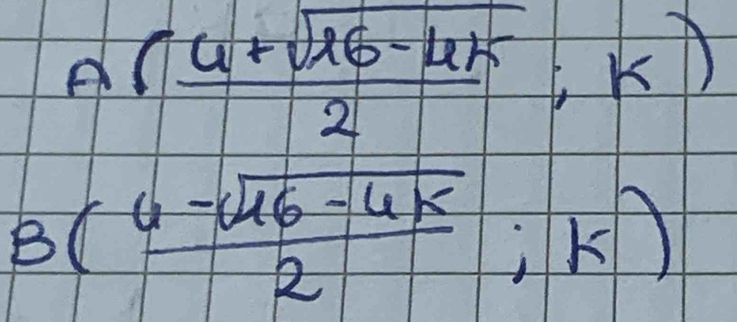 A((4+√(16-4k))/2 ; k)
B((4-√(16-4k))/2 ; k)